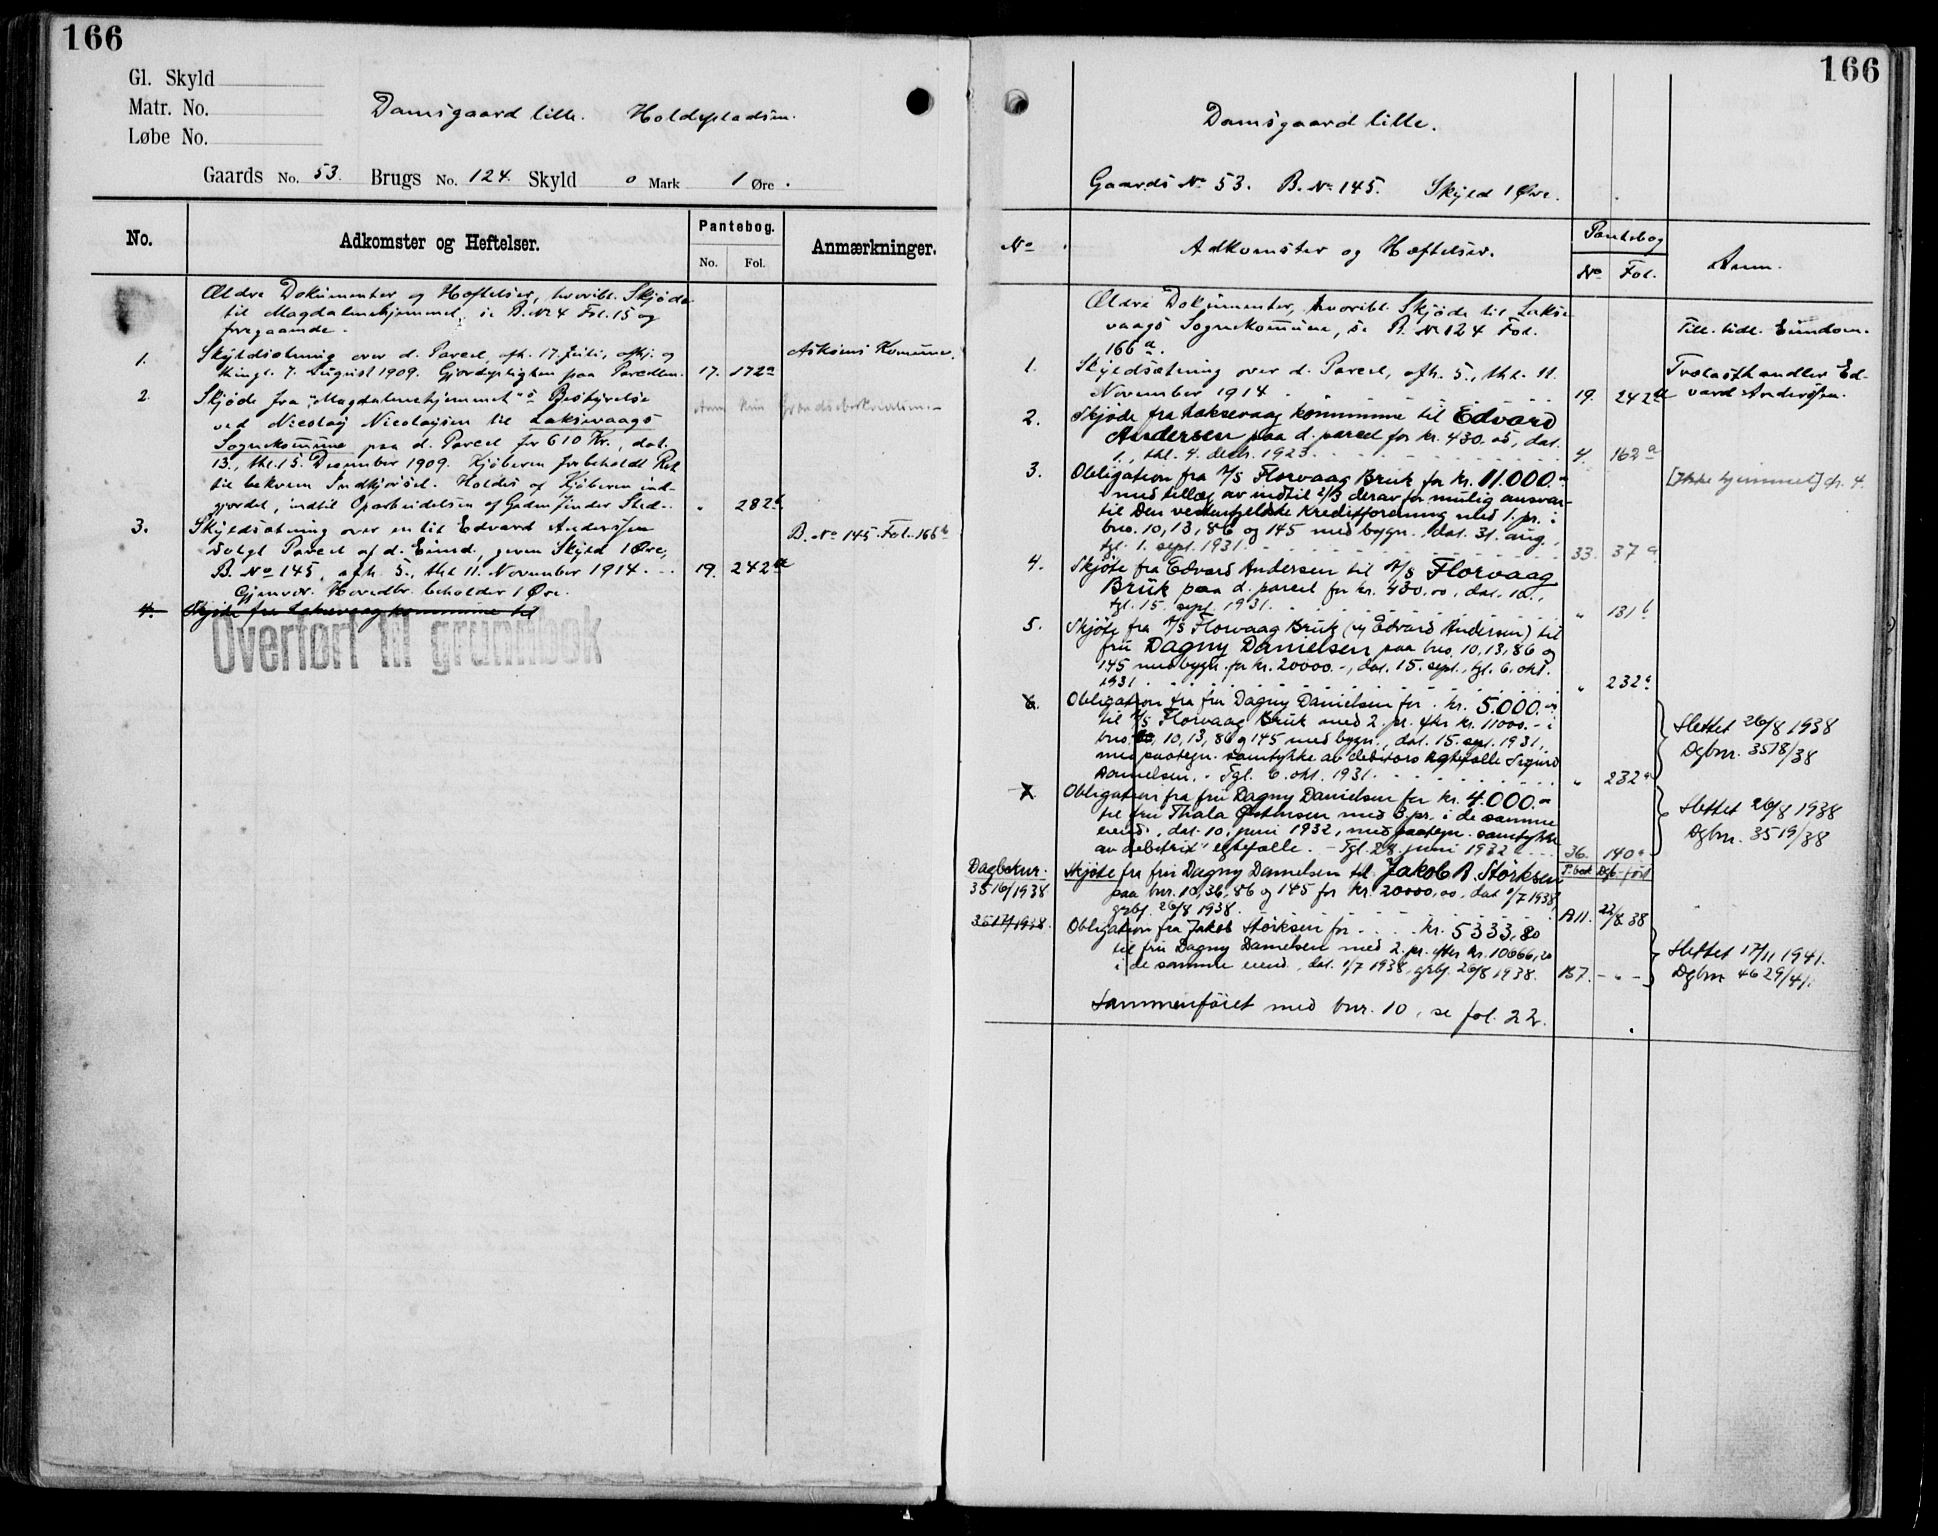 166
Gl. Skyld
Matr. No.
Løbe No.
Damsgaard lille. Holdepladsen.
Gaards No. 53. Brugs No. 124. Skyld 0 Mark 1 Øre.
No.
Adkomster og Heftelser.
Pantebog.
No. Fol.
Anmærkninger.
Ældre Dokumenter og Hæftelser, hvoribl. Skjøde
til Magdalenehjemmet, se B. No 4 Fol. 15 og
foregaaende.
1. Skyldsætning over d. Parcel, afh. 17. Juli, afhj. og
thingl. 7. August 1909. Gjerdepligten paa Parcellen. 17. 172a
Askøens Komune.
2. Skjøde fra "Magdalenehjemmet"s Bestyrelse
ved Nicolay Nicolaysen til Laksevaags
Sognekommune paa d. Parcel for 610 Kr., dat.
13., thl. 15. December 1909. Kjøberen forbeholdt Ret
til bekvem Indkjørsel. Holdes af Kjøberen ind-
gjerdet, indtil Oparbeidelsen af Gaden finder Sted. " 282
3. Skyldsætning over en til Edvard Andersen
solgt Parcel af d. Eiend., given Skyld 1 Øre,
B. No 145, afh. 5., thl. 11. November 1914. 19. 242a
B. No 145. Fol. 166b
Gjenvær. Hovedbr. beholder 1 Øre.
4. Skjøte fra Laksevaag kommune til
Overført til grunnbok
166
Damsgaard lille.
Gaards No 53. B. No 145. Skyld 1 Øre.
No
Adkomster og Hæftelser.
Pantebog
No Fol.
Anm.
Ældre Dokumenter, hvoribl. Skjøde til Lakse-
vaags Sognekommune, se B. No 124 Fol.
166a.
Till. tidl. Eiendom.
1. Skyldsætning over d. Parcel, afh. 5., thl. 11.
November 1914 19. 242a
Trælasthandler Ed-
vard Andersen.
2. Skjøde fra Laksevaag kommune til Edvard
Andersen paa d. parcel for kr. 430.05, dat.
1., thl. 4. decb. 1923. 4. 162a
3. Obligation fra A/S Florvaag Bruk for kr. 11.000.-
med tillæg av indtil 2/3 derav for mulig ansvar
til Den vestenfjeldske Kreditforening med 1. pr. i
bno. 10, 13, 86 og 145 med bygn. dat. 31. aug.,
tgl. 1. sept. 1931. 33. 37a
[Ikke hjemmel] cfr. 4.
4. Skjøte fra Edvard Andersen til A/S Florvaag
Bruk paa d. parcel for kr. 430.00, dat. 10.,
tgl. 15. sept. 1931. " 131b
5. Skjøte fra A/S Florvaag Bruk (og Edvard Andersen) til
fru Dagny Danielsen paa bno. 10, 13, 86 og
145 med bygn. for kr. 20000.-, dat. 15. sept., tgl. 6. okt.
1931. " 232a
6. Obligation fra fru Dagny Danielsen for kr. 5.000.-
til A/S Florvaag Bruk med 2. pr. efter kr. 11000.- i
bno. 10, 13, 86 og 145 med bygn., dat. 15. sept. 1931,
med paategn. samtykke av debitors egtefælle Sigurd
Danielsen. - Tgl. 6. okt. 1931. " 232a
Slettet 26/8 1938
Dgbnr. 3518/38
7. Obligation fra fru Dagny Danielsen for kr. 4.000.-
til fru Thala med 3. pr. i de samme
eiend., dat. 10. juni 1932, med paategn. samtykke
av debitrix' egtefælle. - Tgl. 28. juni 1932. 36. 140a
Slettet 26/8 1938
Dgbnr. 3519/38
P.bok Dgb.ført
Dagboknr.
3516/1938 Skjøte fra fru Dagny Danielsen til Jakob B. Storksen
paa bnr. 10, 36, 86 og 145 for kr. 20000,00, dat 1/7 1938,
grbf. 26/8 1938. A11. 22/8 38
3517/1938 Obligation fra Jakob Storksen for kr. 5333,80
til fru Dagny Danielsen med 2. pr. efter kr. 10666,20
i de samme eiend., dat. 1/7 1938, grbf. 26/8 1938. B7. - " -
Slettet 17/11 1941.
Dgbnr 4629/41.
Sammenføiet med bnr. 10, se fol. 22.